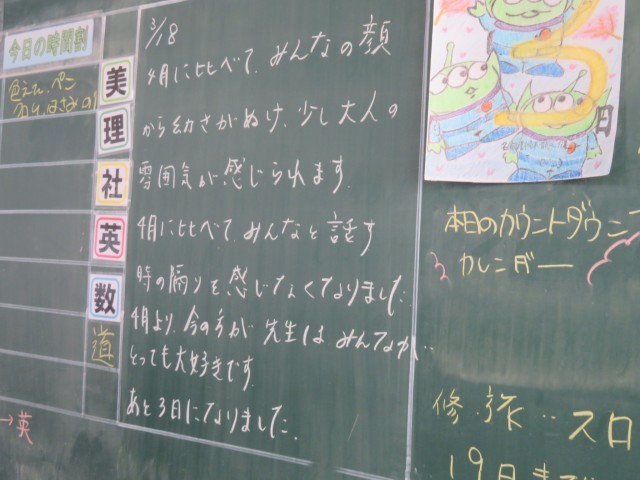 今日の時間割
美
理
社
英
数
道
→英
3/18
4月に比べて、みんなの顔
から幼さがぬけ、少し大人の
雰囲気が感じられます。
4月に比べて、みんなと話す
時の隔りを感じなくなりました。
4月より、今の方が先生はみんなが…
とっても大好きです。
あと3日になりました。
日
本日のカウントダウン
カレンダー
修・旅…スロ
19日まで